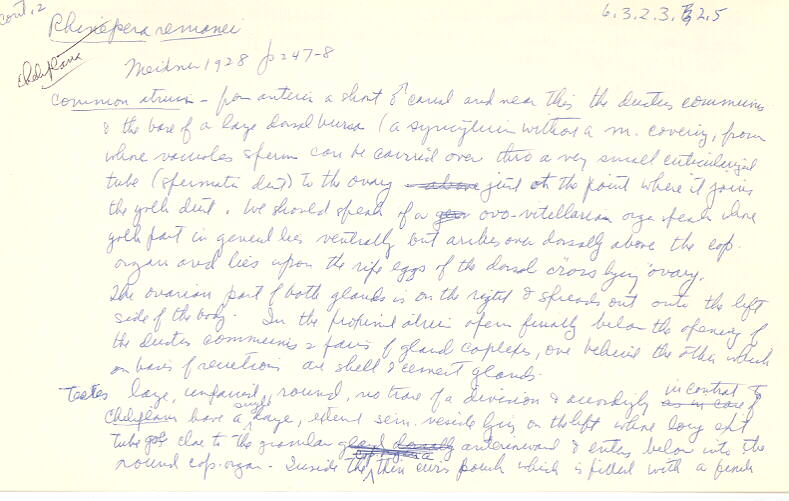 cont. 2
6.3.2.3. 2.5
Rhinepera remanei
Cheliplana
Meidner 1928 p 247-8
Common atrium - from anterior a short ♂ canal and near this the ductus communis
& the base of a large dorsal bursa (a syncytium without a m. covering, from
whose vacuoles sperm can be carried over thro a very small cuticularized
tube (spermatic duct) to the ovary just at the point where it joins
the yolk duct. We should speak of a ovo-vitellarian orga speak whose
yolk part in general lies ventrally but arches over dorsally above the cop.
organ and lies upon the ripe eggs of the dorsal cross lying ovary.
The ovarian part of both glands is on the right & spreads out onto the left
side of the body. In the proximal atrium open finally below the opening of
the ductus communis 2 pairs of gland coplexes, one behind the other which
on basis of reactions are shell & cement glands.
Testes large, unpaired, round, no trace of a division & accordingly in contrast to
Cheliplana have a single large, extend sem. vesicle lying on the left whose long exit
tube goes close to the granular anteriorward & enters below into the
round cop. organ. - Inside the cop organ a thin cuis pouch which is filled with a penis